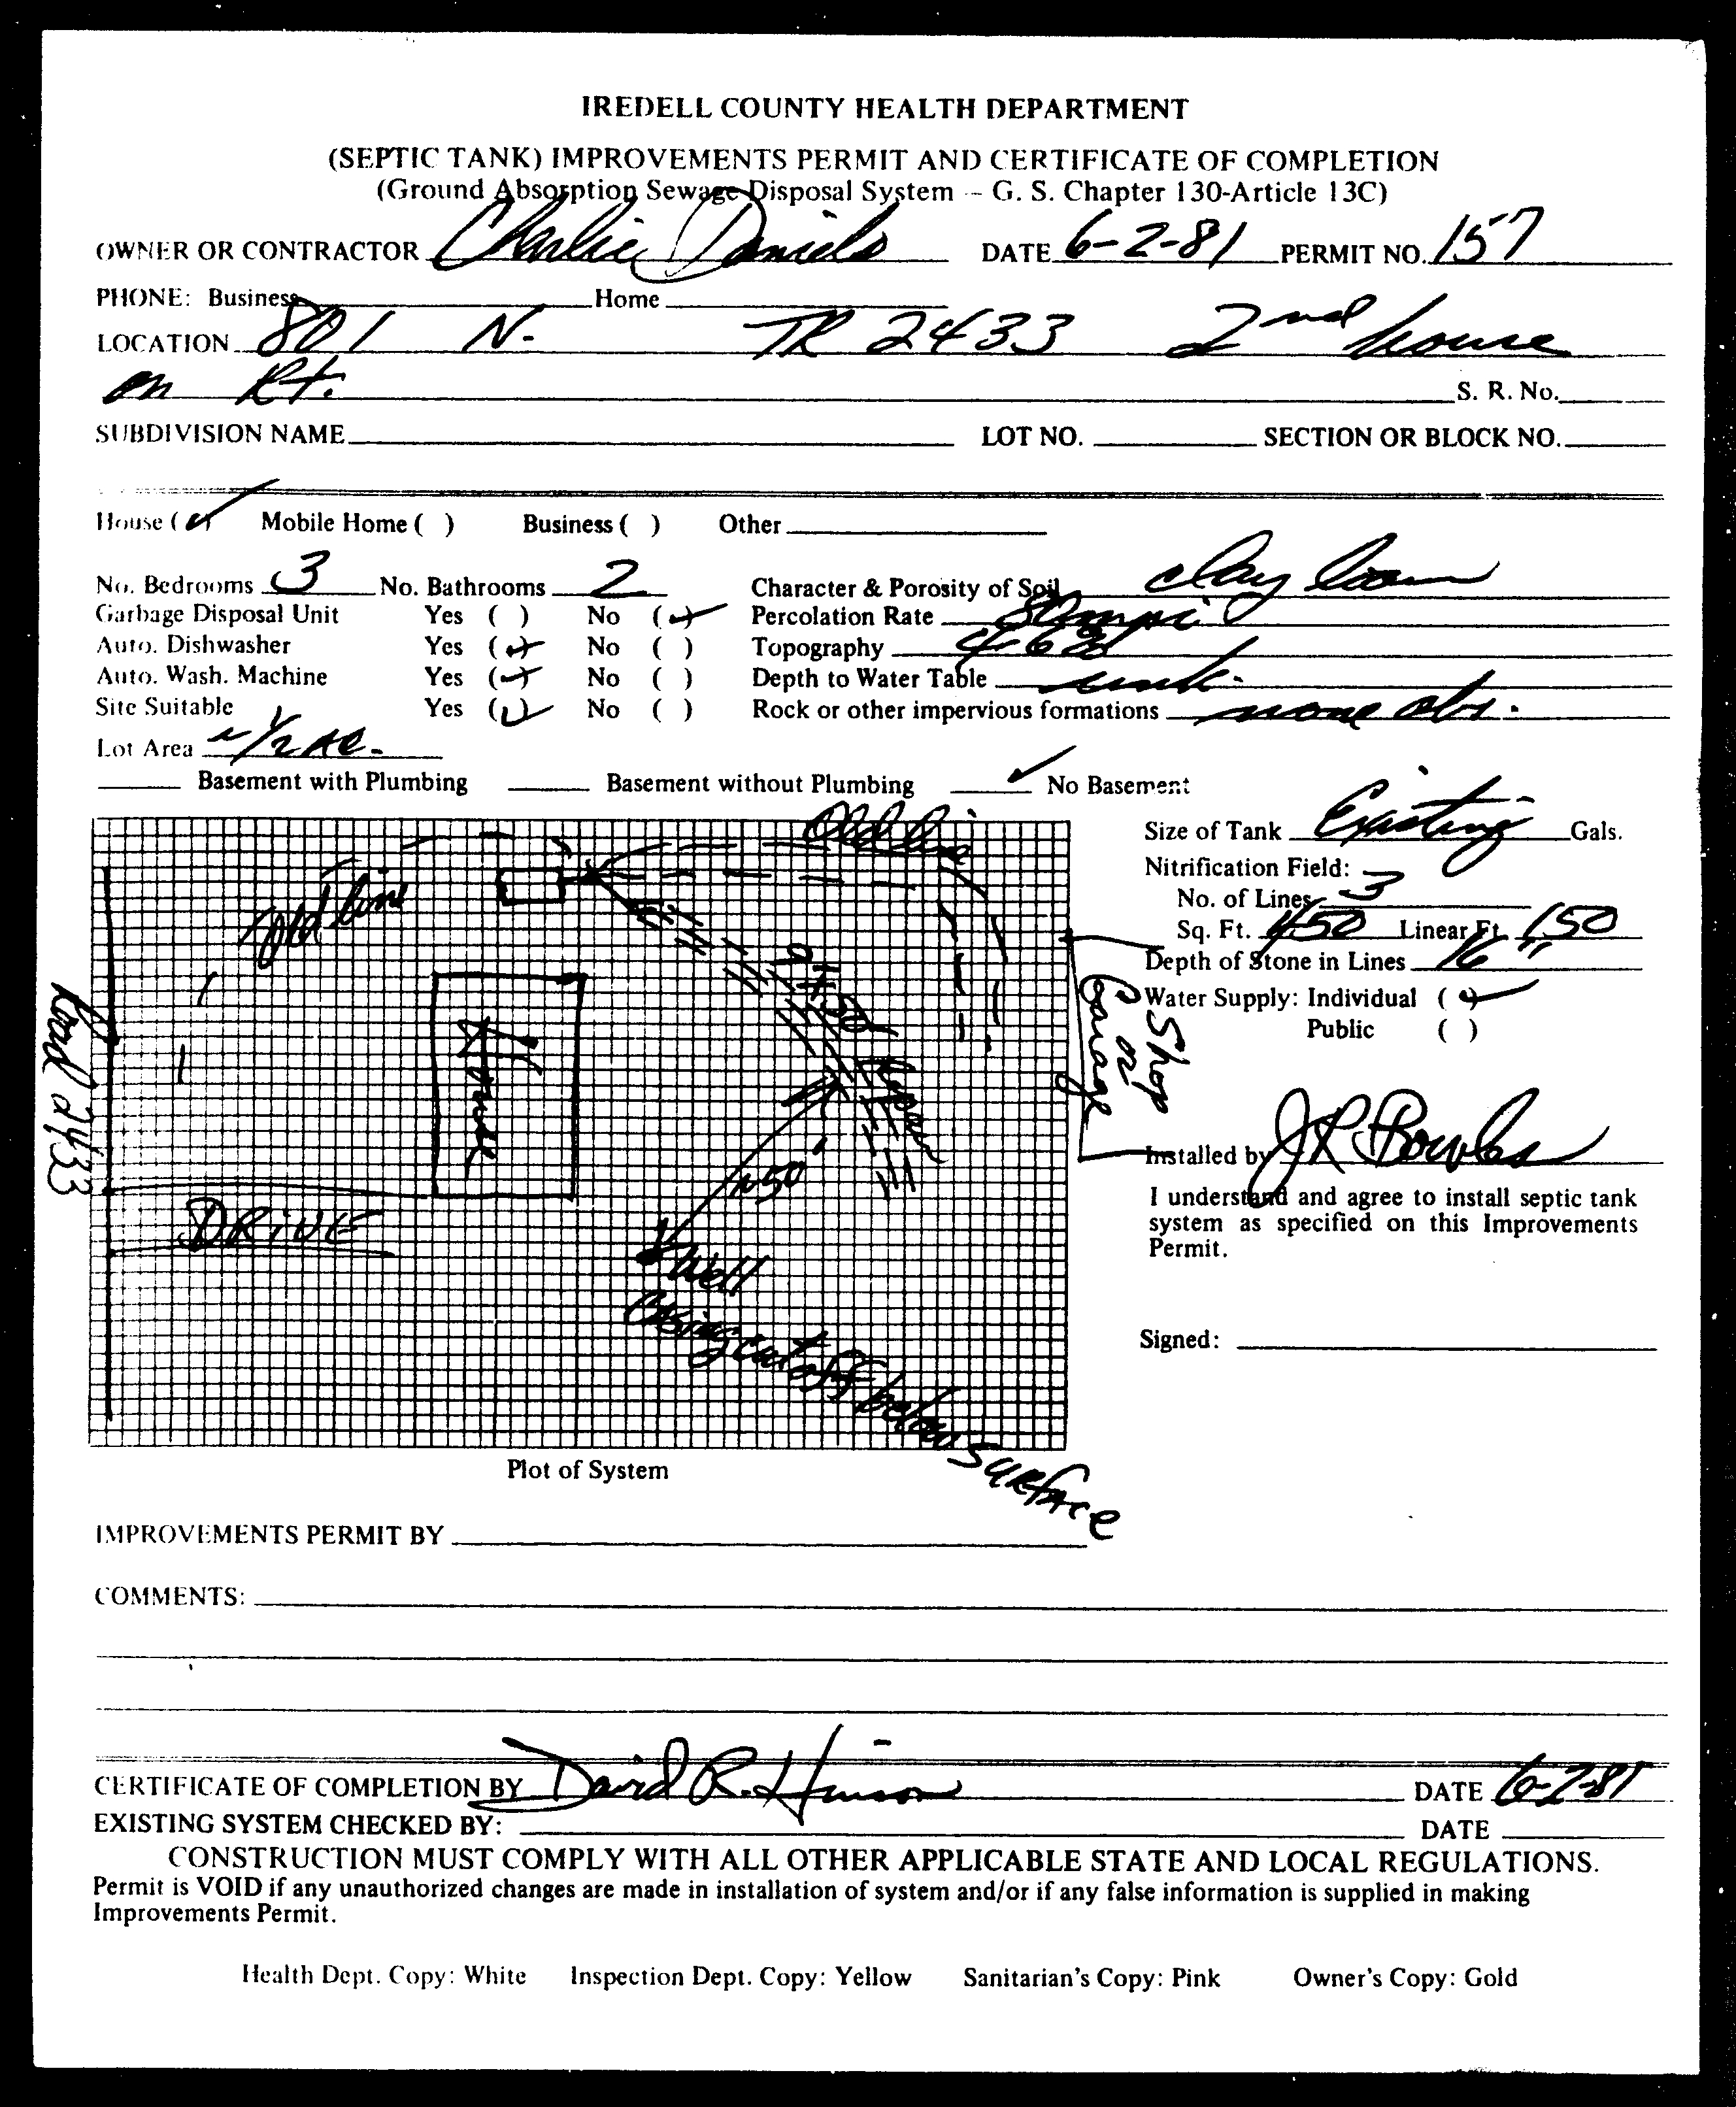 IREDELL COUNTY HEALTH DEPARTMENT
(SEPTIC TANK) IMPROVEMENTS PERMIT AND CERTIFICATE OF COMPLETION
(Ground Absorption Sewage Disposal System -- G. S. Chapter 130-Article 13C)
OWNER OR CONTRACTOR Charlie Daniels DATE 6-2-81 PERMIT NO. 157
PHONE: Business Home
LOCATION 801 N. TR 2433 2nd house
on Rt. S. R. No.
SUBDIVISION NAME LOT NO. SECTION OR BLOCK NO.
House (✓) Mobile Home ( ) Business ( ) Other
No. Bedrooms 3 No. Bathrooms 2 Character & Porosity of Soil clay loam
Garbage Disposal Unit Yes ( ) No (✓) Percolation Rate
Auto. Dishwasher Yes (✓) No ( ) Topography
Auto. Wash. Machine Yes (✓) No ( ) Depth to Water Table unk.
Site Suitable Yes (✓) No ( ) Rock or other impervious formations none obs.
Lot Area ~ 1/2 AC.
Basement with Plumbing Basement without Plumbing ✓ No Basement
Size of Tank Existing Gals.
Nitrification Field:
No. of Lines 3
Sq. Ft. 450 Linear Ft. 150
Depth of Stone in Lines 16"
Water Supply: Individual (✓)
Public ( )
Old line
old line
House
Road 2433
DRIVE
Shop
or
Garage
~50'
Well
Casing cut off below SURFACE
Installed by JR Bowles
I understand and agree to install septic tank
system as specified on this Improvements
Permit.
Signed:
Plot of System
IMPROVEMENTS PERMIT BY
COMMENTS:
CERTIFICATE OF COMPLETION BY David R. Hinson DATE 6-2-81
EXISTING SYSTEM CHECKED BY: DATE
CONSTRUCTION MUST COMPLY WITH ALL OTHER APPLICABLE STATE AND LOCAL REGULATIONS.
Permit is VOID if any unauthorized changes are made in installation of system and/or if any false information is supplied in making
Improvements Permit.
Health Dept. Copy: White Inspection Dept. Copy: Yellow Sanitarian's Copy: Pink Owner's Copy: Gold